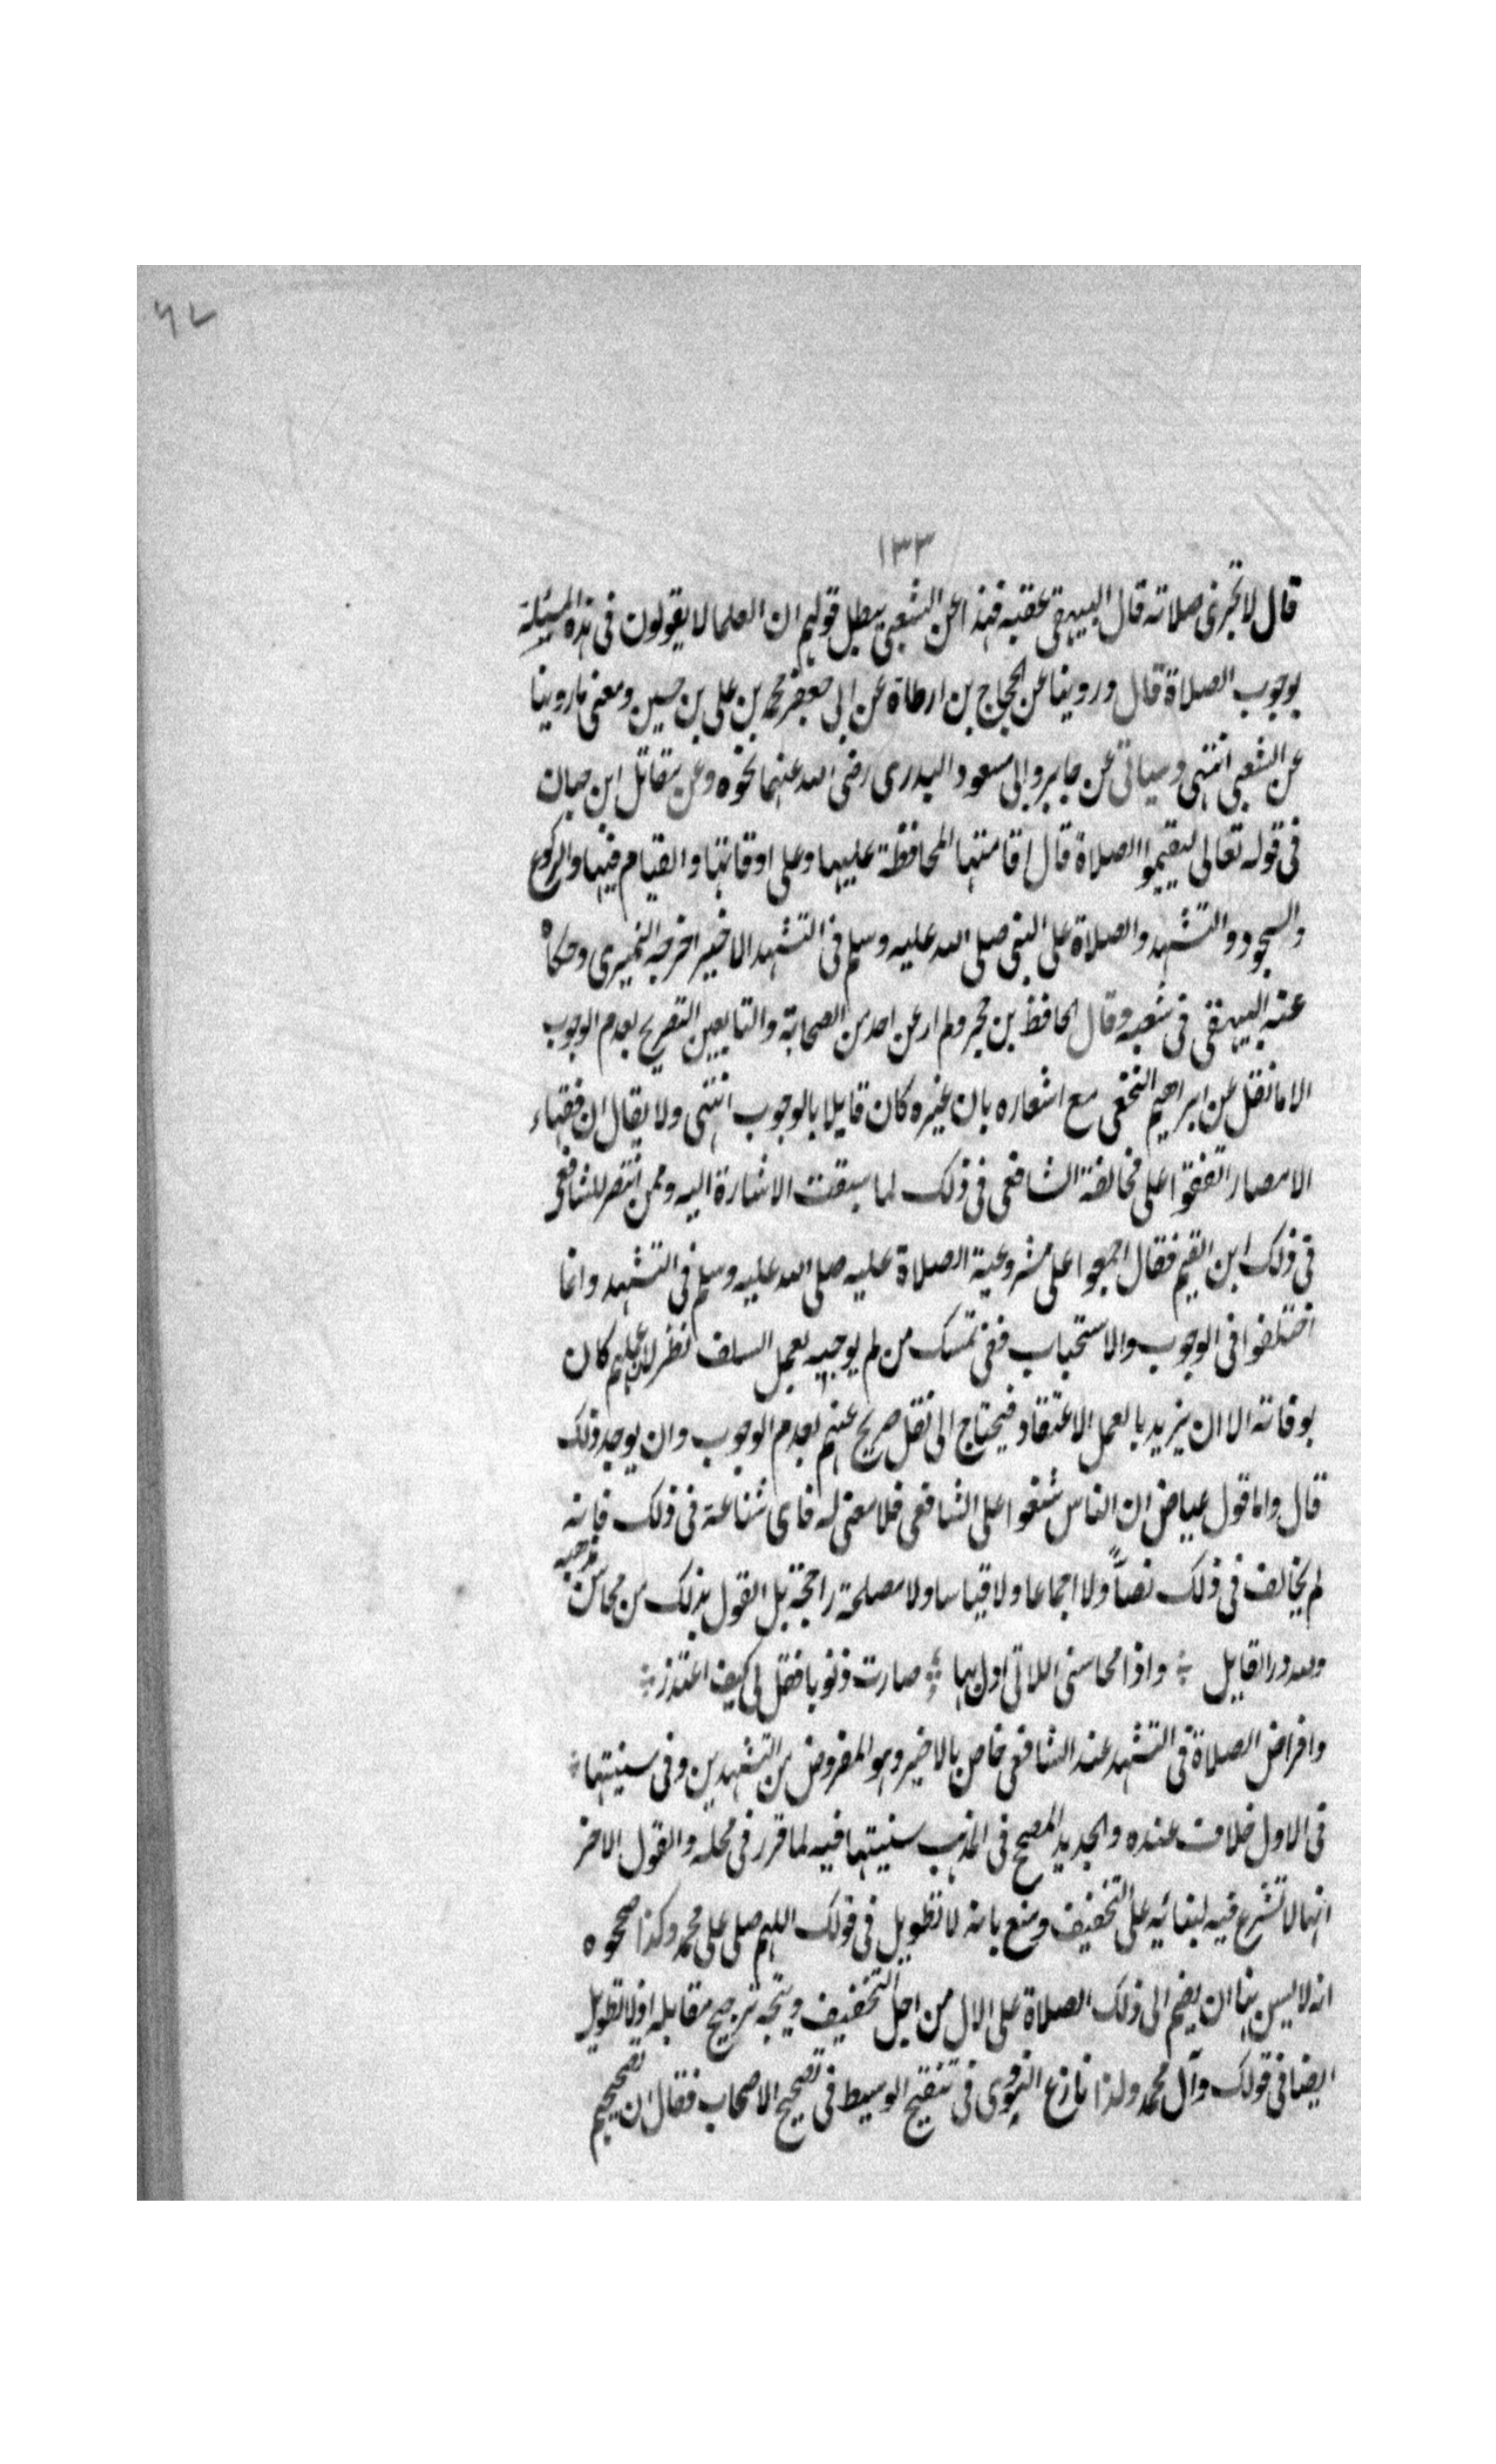 ٦٧
١٣٣
قال لا تجزئ صلاته قال البيهقي عقبه فهذا عن الشعبي يبطل قولهم ان العلما لا يقولون في هذه المسئلة
بوجوب الصلاة قال وروينا عن الحجاج بن ارطاة عن ابي جعفر محمد بن علي بن حسين ومعنى ما روينا
عن الشعبي انتهى وسياتي عن جابر وابي مسعود البدرى رضى الله عنهما نحوه وعن مقاتل ابن حبان
في قوله تعالى ليقيموا الصلاة قال اقامتها المحافظة عليها وعلى اوقاتها والقيام فيها والركوع
والسجود والتشهد والصلاة على النبي صلى الله عليه وسلم في التشهد الاخير اخرجه النميرى وحكاه
عنه البيهقي في شعبه وقال الحافظ بن حجر ولم ار عن احد من الصحابة والتابعين التصريح بعدم الوجوب
الا ما نقل عن ابراهيم النخعي مع اشعاره بان غيره كان قايلا بالوجوب انتهى ولا يقال ان فقهاء
الامصار اتفقوا على مخالفة الشافعي في ذلك لما سبقت الاشارة اليه وممن انتصر للشافعي
في ذلك ابن القيم فقال اجمعوا على مشروعية الصلاة عليه صلى الله عليه وسلم في التشهد وانما
اختلفوا في الوجوب والاستحباب ففي تمسك من لم يوجبه بعمل السلف نظر لان عملهم كان
بوفاقه الا ان يزيد بالعمل الاعتقاد فيحتاج الى نقل صريح عنهم بعدم الوجوب وان يوجد ذلك
قال واما قول عياض ان الناس شنعوا على الشافعي فلا معنى له فاى شناعة في ذلك فانه
لم يخالف في ذلك نصاً ولا اجماعا ولا قياسا ولا مصلحة راجحة بل القول بذلك من محاسن مذهبه
ولله در القايل واذا محاسني اللاتي ادل بها صارت ذنوبا فقل لي كيف اعتذر
وافراض الصلاة في التشهد عند الشافعي خاص بالاخير وهو المفروض من التشهدين وفي سنيتها
في الاول خلاف عنده والجديد المصحح في المذهب سنيتها فيه لما قرر في محله والقول الاخر
انها لا تشرع فيه لبنائيه على التخفيف ومنع بانه لا تطويل في قولك اللهم صلى على محمد وكذا صححوه
انه لا يسن بنا ان يضم الى ذلك الصلاة على الال من اجل التخفيف ويتجه ترجيح مقابله اذ لا تطويل
ايضا في قولك وآل محمد ولذا نازع النووى في تنقيح الوسيط في تصحيح الاصحاب فقال ان تصحيحهم